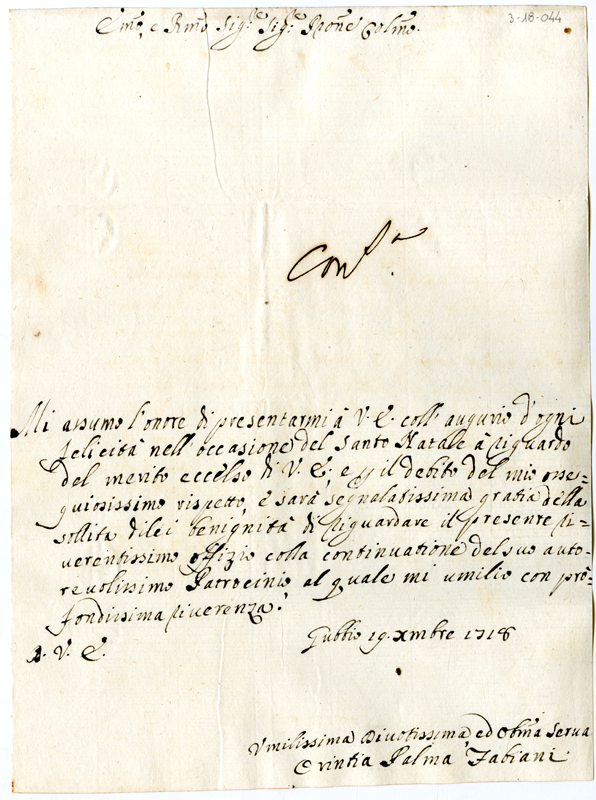 3-18-044
Emo, e Rmo Sigre Sigre Prone Colmo.
Conf.a
Mi assumo l'onore di presentarmi à V. E. coll'augurio d'ogni
felicità nell'occasione del Santo Natale à riguardo
del merito eccelso di V. E; e p il debito del mio osse=
quiosissimo rispetto, e sarà segnalatissima gratia della
sollita di lei benignità di riguardare il presente ri=
verentissimo offizio colla continuatione del suo auto=
revolissimo Patrocinio al quale mi umilio con prò=
fondissima riverenza.
D. V. E.
Gubbio 19. Xmbre 1718
Vmilissima Divotissima, ed Obma Serva
Orintia Palma Fabiani